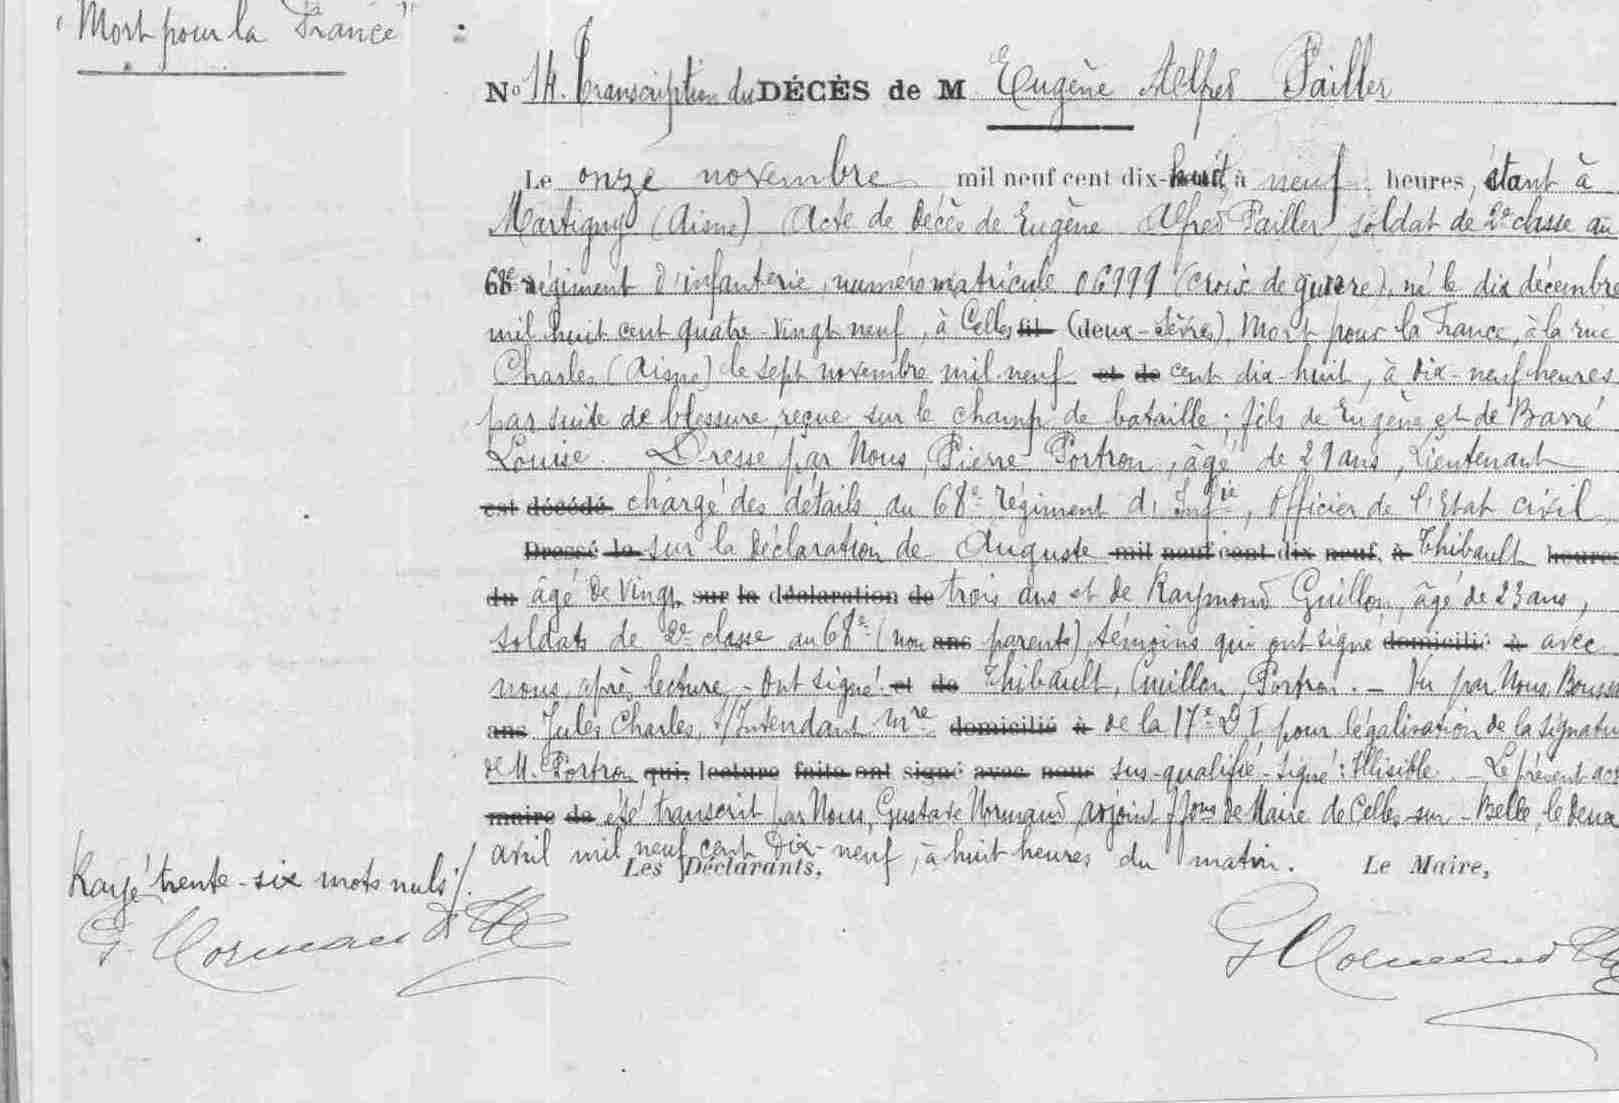 "Mort pour la France"
No 14. Transcription du DÉCÈS de M Eugène Alfred Pailler
Le onze novembre mil neuf cent dix-huit à neuf heures, étant à
Martigny (Aisne) Acte de décès de Eugène Alfred Pailler, soldat de 2e classe au
68e régiment d'infanterie, numéro matricule 06999 (croix de guerre), né le dix décembre
mil huit cent quatre-vingt neuf, à Celles est (deux-Sèvres), Mort pour la France, à la rue
Charles (Aisne) le sept novembre mil neuf et de cent dix-huit, à dix-neuf heures
par suite de blessure reçue sur le champ de bataille; fils de Eugène et de Barré
Louise. Dressé par Nous, Pierre Portron, âgé de 29 ans, Lieutenant
est décédé chargé des détails du 68e régiment d'Infie, Officier de l'Etat civil,
Dressé le sur la déclaration de Auguste mil neuf cent dix neuf, à Thibault heures
du âgé de vingt sur la déclaration de trois ans et de Raymond Guillon, âgé de 23 ans,
soldats de 2e classe au 68e (non ans parents), témoins qui ont signé domicilié à avec
nous après lecture. - Ont signé et de Thibault, Guillon, Portron. - Vu par Nous,
ans Jules Charles, s/Intendant Mre domicilié à de la 17e D I pour légalisation de la signatu
de M. Portron qui, lecture faite ont signé avec nous sus-qualifié - signé: Illisible. - Le présent acte
maire de été transcrit par Nous, Gustave Normand, adjoint ffons de Maire de Celles-sur-Belle, le deux
avril mil neuf cent Dix-neuf, à huit heures du matin.
Les Déclarants, Le Maire,
Rayé trente-six mots nuls
G. Normand
G Normand